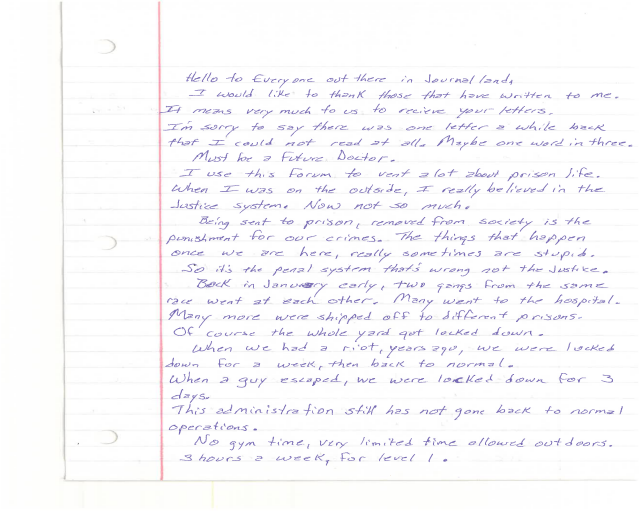 Hello to Everyone out there in Journal land,
I would like to thank those that have written to me.
It means very much to us to recieve your letters.
I'm sorry to say there was one letter a while back
that I could not read at all. Maybe one word in three.
Must be a Future Doctor.
I use this Forum to vent alot about prison life.
When I was on the outside, I really believed in the
Justice system. Now not so much.
Being sent to prison, removed from society is the
punishment for our crimes. The things that happen
once we are here, really sometimes are stupid.
So it's the penal system that's wrong not the Justice.
Back in January early, two gangs from the same
race went at each other. Many went to the hospital.
Many more were shipped off to different prisons.
Of course the whole yard got locked down.
When we had a riot, years ago, we were locked
down for a week, then back to normal.
When a guy escaped, we were locked down for 3
days.
This administration still has not gone back to normal
operations.
No gym time, very limited time allowed outdoors.
3 hours a week, for level 1.